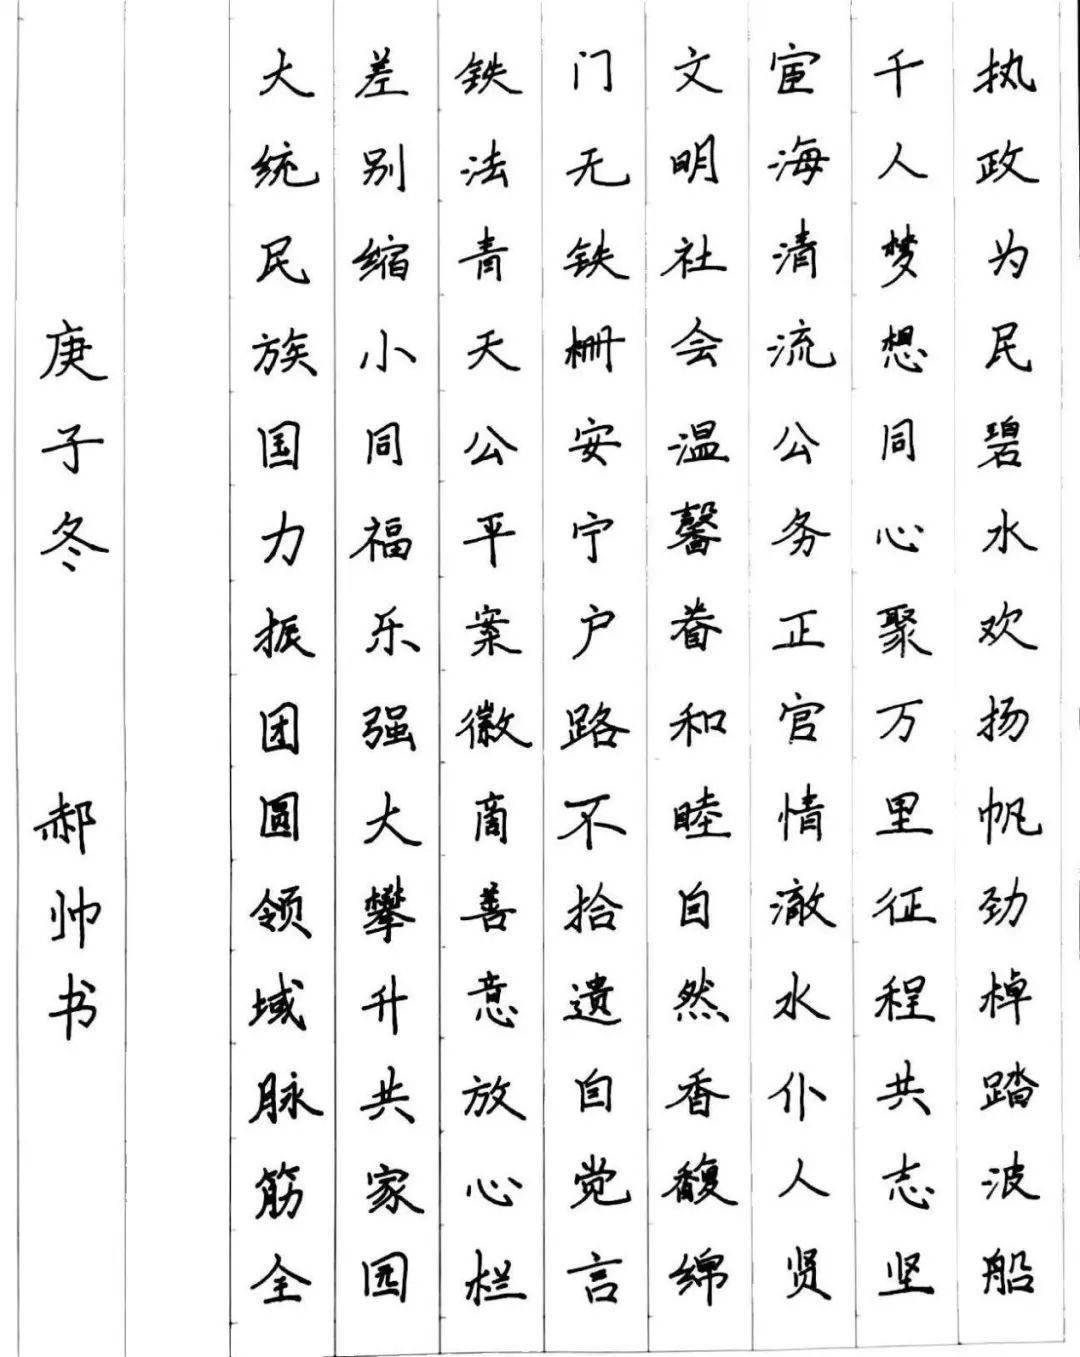 执政为民碧水欢扬帆劲棹踏波船
千人梦想同心聚万里征程共志坚
宦海清流公务正官情澈水仆人贤
文明社会温馨眷和睦自然香馥绵
门无铁栅安宁户路不拾遗自觉言
铁法青天公平案徽商善意放心栏
差别缩小同福乐强大攀升共家园
大统民族国力振团圆领域脉筋全
庚子冬 郝帅书